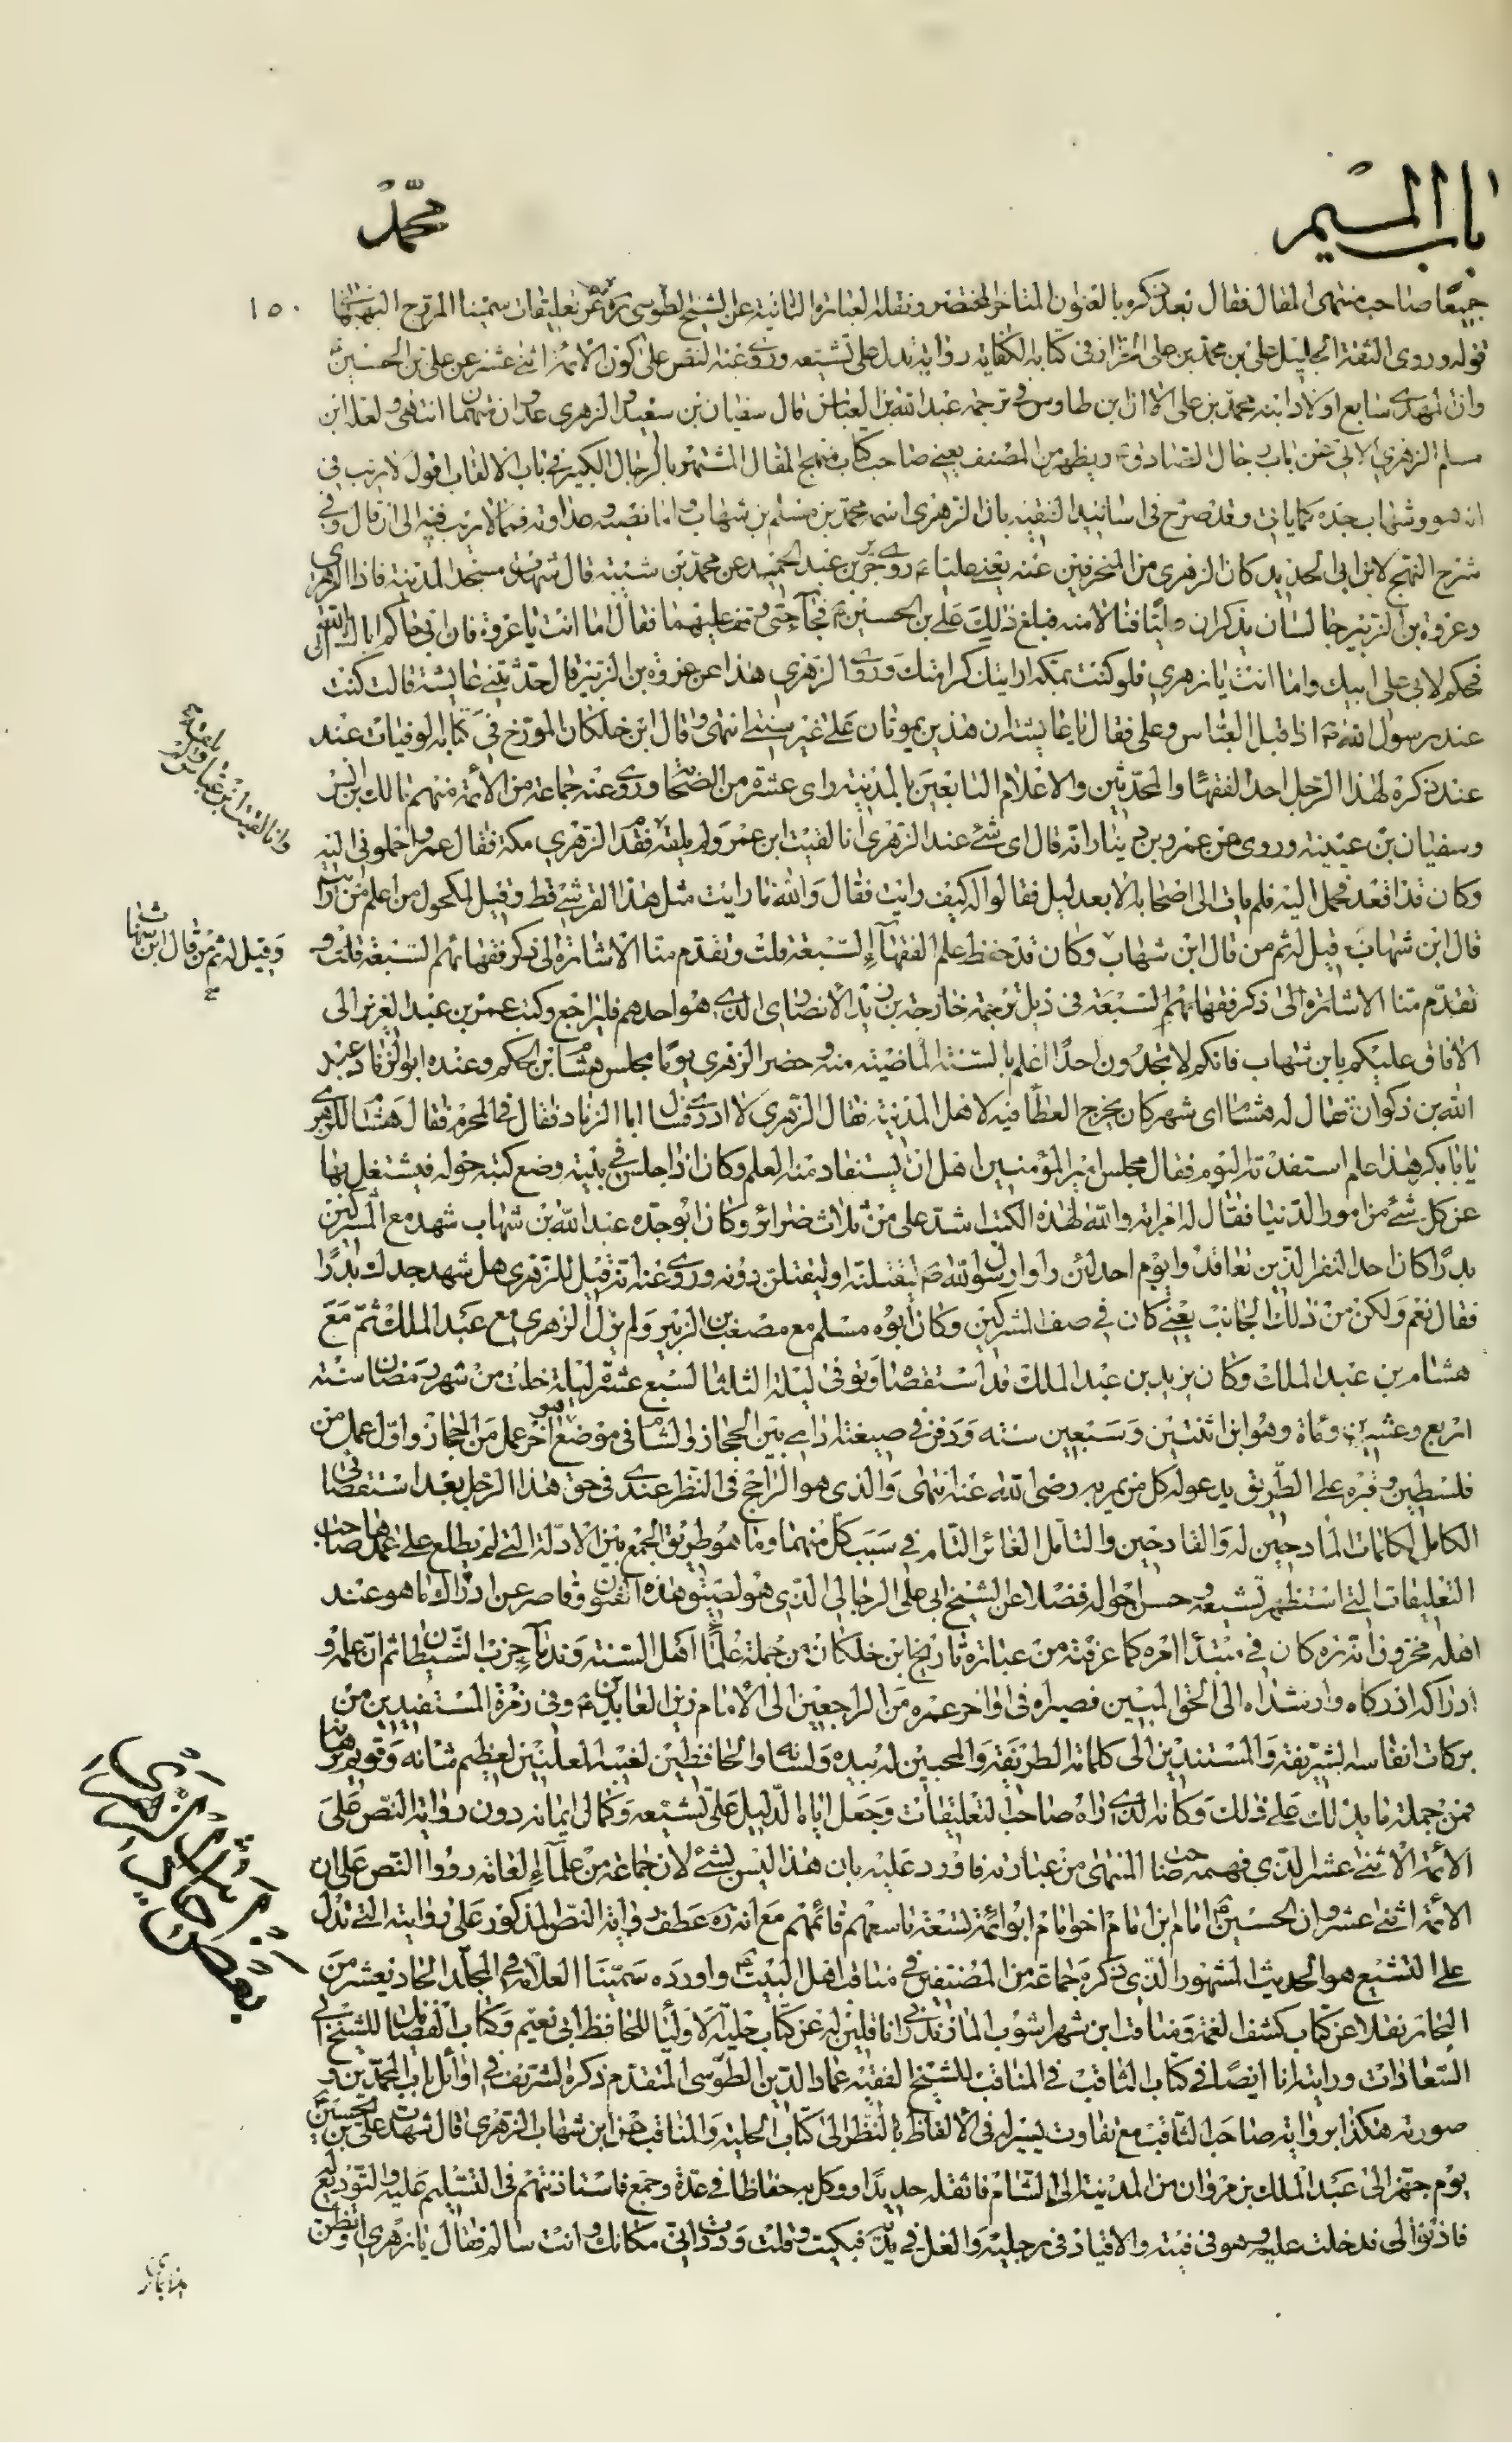 باب الميم
محمد
١٥٠
جميعًا صاحب منتهى المقال فقال بعد ذكره بالعنوان المتاخر المختصر ونقله العبارة الثانية عن الشيخ الطوسي ره عن تعليقات سمينا المروج البهبهاني
قوله وروى الثقة الجليل علي بن محمد بن علي الخزاز في كتابه الكفاية رواية تدل على تشيعه وروى عنه النص على كون الائمة اثنى عشر عن علي بن الحسين
وان المهدي سابع اولاد ابنه محمد بن علي الا ان ابن طاوس في ترجمة عبد الله بن العباس قال سفيان بن سعيد والزهري عدوان متهمان انتهى ولعله ابن
مسلم الزهري الاتي عن باب رجال الصادق ويظهر من المصنف يعني صاحب كتاب منهج المقال المشتهر بالرجال الكبير في باب الالقاب اقول لا ريب في
انه هو وشهاب جده كما ياتي وقد صرح في اسانيد الفقيه بان الزهري اسمه محمد بن مسلم بن شهاب واما نصبه وعداوته فمما لا ريب فيه الى ان قال وفي
شرح النهج لابن ابي الحديد كان الزهري من المنحرفين عنه يعني عليا ع روى جرير بن عبد الحميد عن محمد بن شيبة قال شهدت مسجد المدينة فاذا الزهري
وعروة بن الزبير جالسان يذكران عليًا فنالا منه فبلغ ذلك علي بن الحسين فجاء حتى وقف عليهما فقال اما انت يا عروة فان ابي حاكم اباك الى الله
فحكم لابي على ابيك واما انت يا زهري فلو كنت بمكة لرايتك كرامتك وروى الزهري هذا عن عروة بن الزبير قال حدثتني عايشة قالت كنت
عند رسول الله ص اذا قبل العباس وعلي فقال يا عايشة ان هذين يموتان على غير سنتي انتهى وقال ابن خلكان المورخ في كتابه الوفيات عند
عند ذكره لهذا الرجل احد الفقهاء والمحدثين والاعلام التابعين بالمدينة راى عشرة من الصحابة وروى عنه جماعة من الأئمة منهم مالك بن انس
وسفيان بن عيينة وروى عن عمرو بن دينار انه قال اى شئ عند الزهري انا لقيت ابن عمر ولم يلقه فقدم الزهري مكة فقال عمرو احملوني اليه
وكان قد اقعد فحمل اليه فلم يات الى اصحابه الا بعد ليل فقالوا له كيف رايت فقال والله ما رايت مثل هذا القرشي قط وقيل لمكحول من اعلم من رايت
قال ابن شهاب قيل له ثم من قال ابن شهاب وكان قد حفظ علم الفقهاء السبعة قلت وتقدم منا الاشارة الى ذكر فقهائهم السبعة قلت و
تقدم منا الاشارة الى ذكر فقهائهم السبعة في ذيل ترجمة خارجة بن زيد الأنصاري الذي هو احدهم فليراجع وكتب عمر بن عبد العزيز الى
الافاق عليكم بابن شهاب فانكم لا تجدون احدًا اعلم بالسنة الماضية منه وحضر الزهري يومًا مجلس هشام بن الحكم وعنده ابو الزناد عبد
الله بن ذكوان فقال له هشام اى شهر كان يخرج العطاء فيه لاهل المدينة فقال الزهري لا ادري فسال ابا الزناد فقال في المحرم فقال هشام للزهري
يا ابا بكر هذا علم استفدته اليوم فقال مجلس امير المؤمنين اهل ان يستفاد منه العلم وكان اذا جلس في بيته وضع كتبه حوله فيشتغل بها
عن كل شئ من امور الدنيا فقال له امراته والله لهذه الكتب اشد على من ثلاث ضرائر وكان ابو جده عبد الله بن شهاب شهد مع المشركين
بدرًا وكان احد النفر الذين تعاقدوا يوم احد لئن راوا رسول الله ص ليقتلنه او ليقتلن دونه وروى عنه انه قيل للزهري هل شهد جدك بدرًا
فقال نعم ولكن من ذلك الجانب يعني كان في صف المشركين وكان أبوه مسلم مع مصعب بن الزبير ولم يزل الزهري مع عبد الملك ثم مع
هشام بن عبد الملك وكان يزيد بن عبد الملك قد استقضاه وتوفى ليلة الثلثا لسبع عشرة ليلة خلت من شهر رمضان سنة
اربع وعشرين ومأة وهو ابن اثنتين وسبعين سنة ودفن في ضيعته ادامى بين الحجاز والشام في موضع هو آخر عمل من الحجاز واول عمل من
فلسطين وقبره على الطريق يدعو له كل من يمر به رضي الله عنه انتهى والذي هو الراجح في النظر عندي في حق هذا الرجل بعد استقصائي
الكامل لكلمات المادحين له والقادحين والتامل الغائر التام في سبب كل منهما وما هو طريق الجمع بين الادلة التي لم يطلع على عمدها صاحب
التعليقات التي استظهر تشيعه وحسن احواله فضلا عن الشيخ ابي علي الرجالي الذي هو لصيق هذه الفنون وقاصر عن ادراك ما هو عند
اهله مخزون انه ره كان في مبتدأ امره كما عرفته من عبارة تاريخ ابن خلكان من جملة علماء اهل السنة وندماء حزب الشيطان ثم ان علمه و
ادراكه ادركاه وارشداه الى الحق المبين فصيراه في اواخر عمره من الراجعين الى الامام زين العابدين ع وفي زمرة المستفيدين من
بركات انفاسه الشريفة والمستندين الى كلماته الطريفة والمحبين له بيده ولسانه والحافظين لغيبه المعلنين لعظيم شانه وقويم برهانه
فمن جملة ما يدلك على ذلك وكانه الذي راه صاحب التعليقات وجعل اياه الدليل على تشيعه وكمال ايمانه دون رواية النص على
الأئمة الاثنى عشر الذي فهمه صاحب المنتهى من عبارته فاورد عليه بان هذا ليس بشئ لان جماعة من علماء العامة رووا النص على ان
الائمة اثنى عشر وان الحسين امام ابن امام اخو امام ابو ائمة تسعة تاسعهم قائمهم مع انه ره عطف رواية النص المذكور على روايته التي تدل
على التشيع هو الحديث المشهور الذي ذكره جماعة من المصنفين في مناقب اهل البيت واورده سمينا العلامة في المجلد الحادي عشر من
البحار نقلا عن كتاب كشف الغمة ومناقب ابن شهر اشوب المازندراني ناقلين له عن كتاب حلية الاولياء للحافظ ابي نعيم وكتاب الفضائل للشيخ ابي
السعادات ورايته انا ايضًا في كتاب الثاقب في المناقب للشيخ الفقيه عماد الدين الطوسي المتقدم ذكره الشريف في اوائل باب المحمدين و
صورته هكذا برواية صاحب الثاقب مع تفاوت يسير له في الألفاظ بالنظر الى كتاب الحلية والمناقب عن ابن شهاب الزهري قال شهدت علي بن الحسين
يوم حمله الى عبد الملك بن مروان من المدينة الى الشام فاثقله حديدًا ووكل به حفاظا في عدة وجمع فاستاذنتهم في التسليم عليه والتوديع
فاذنوا لي فدخلت عليه وهو في قبة والاقياد في رجليه والغل في يديه فبكيت وقلت وددت اني مكانك وانت سالم فقال يا زهري اوتظن
وانا لقيت ابن عباس ولم يلقه
وقيل له ثم من قال ابن شهاب